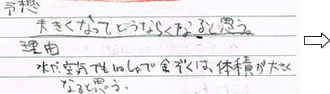 予想
大きくなって、どうならくなると思う。
理由
水だ空気でもいっしょで金ぞくは、体積が大きく
なると思う。